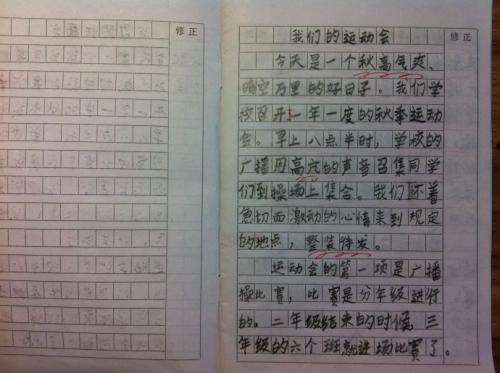 修正
修正
我们的运动会
今天是一个秋高气爽、
晴空万里的好日子。我们学
校召开一年一度的秋季运动
会。早上八点半时，学校的
广播用高亢的声音召集同学
们到操场上集合。我们怀着
急切而激动的心情来到规定
的地点，整装待发。
运动会的第一项是广播
操比赛，比赛是分年级进行
的。二年级结束的时候，三
年级的六个班就进场比赛了。